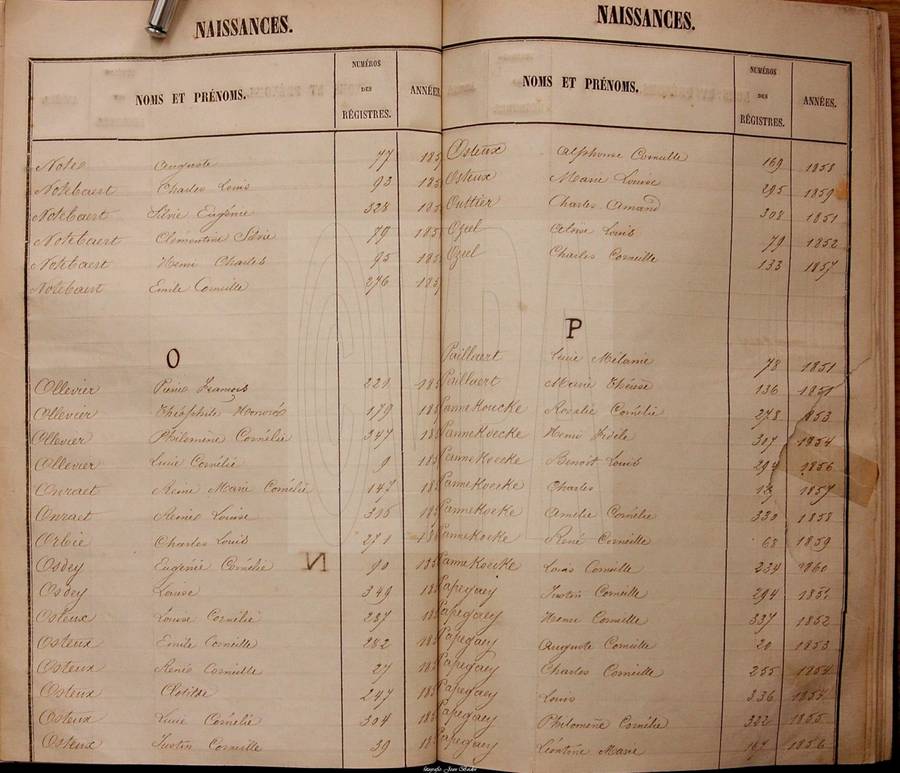 NAISSANCES.
NOMS ET PRÉNOMS.
NUMÉROS
DES
RÉGISTRES.
ANNÉES
Note Auguste 77 185
Notebaert Charles Louis 93 185
Notebaert Silvie Eugénie 328 185
Notebaert Clémentine Silvie 79 185
Notebaert Henri Charles 95 185
Notebaert Emile Corneille 276 185
O
Ollevier Pierre François 221 185
Ollevier Théophile Honoré 179 185
Ollevier Philomène Cornélie 347 185
Ollevier Lucie Cornélie 9 185
Onraet Marie Cornélie 147 185
Onraet Louise 315 185
Orbie Charles Louis 271 185
Osdey Eugenie Cornélie 90 185
N
Osdey Louise 349 185
Osteux Louise Cornélie 237 185
Osteux Emile Corneille 282 185
Osteux René Corneille 27 185
Osteux Clotilde 247 185
Osteux Lucie Cornélie 304 185
Osteux Justin Corneille 39 18
NAISSANCES.
NOMS ET PRÉNOMS.
NUMÉROS
DES
RÉGISTRES.
ANNÉES.
Osteux Alphonse Corneille 169 1858
Osteux Marie Louise 295 1859
Outtier Charles Amand 308 1851
Ozeel Louis 79 1852
Ozeel Charles Corneille 133 1857
P
Paillaert Lucie Mélanie 78 1851
Paillaert Marie Thérèse 136 1851
Pannekoucke Rosalie Cornélie 278 1853
Pannekoecke Henri Fidèle 307 1854
Pannekoecke Benoit Louis 294 1856
Pannekoecke Charles 1857
Pannekoeke Amélie Cornélie 330 1858
Pannekocke René Corneille 68 1859
Pannekoecke Louis Corneille 234 1860
Papegaey Justin Corneille 294 1851
Papegaey Henri Corneille 337 1852
Papegaey Auguste Corneille 20 1853
Papegaey Charles Corneille 255 1854
Papegaey Louis 336 1854
Papegaey Philomène Cornélie 322 1855
Papegaey Léontine Marie 167 1856